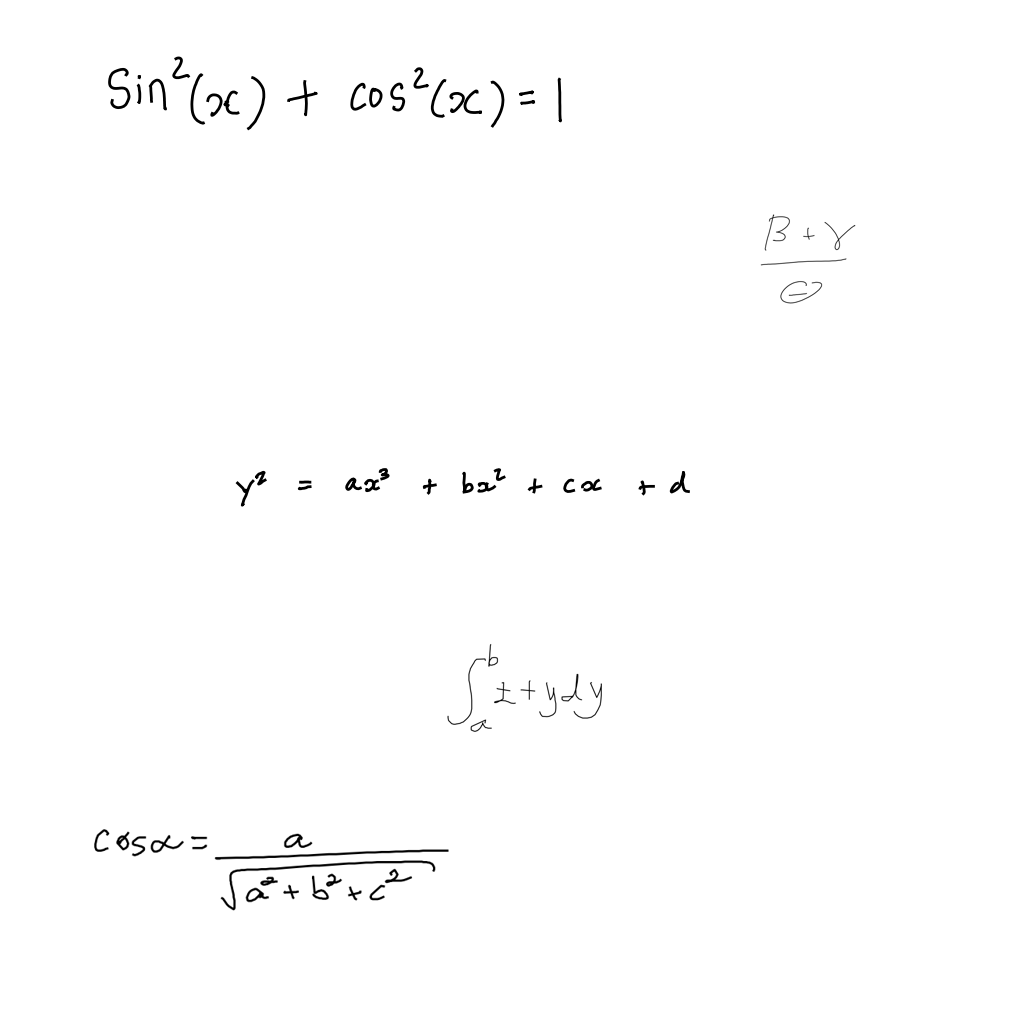 sin²(x) + cos²(x) = 1
\frac{β + γ}{Θ}
y² = ax³ + bx² + cx + d
\int_{a}^{b} ± + y dy
cos α = \frac{a}{\sqrt{a² + b² + c²}}